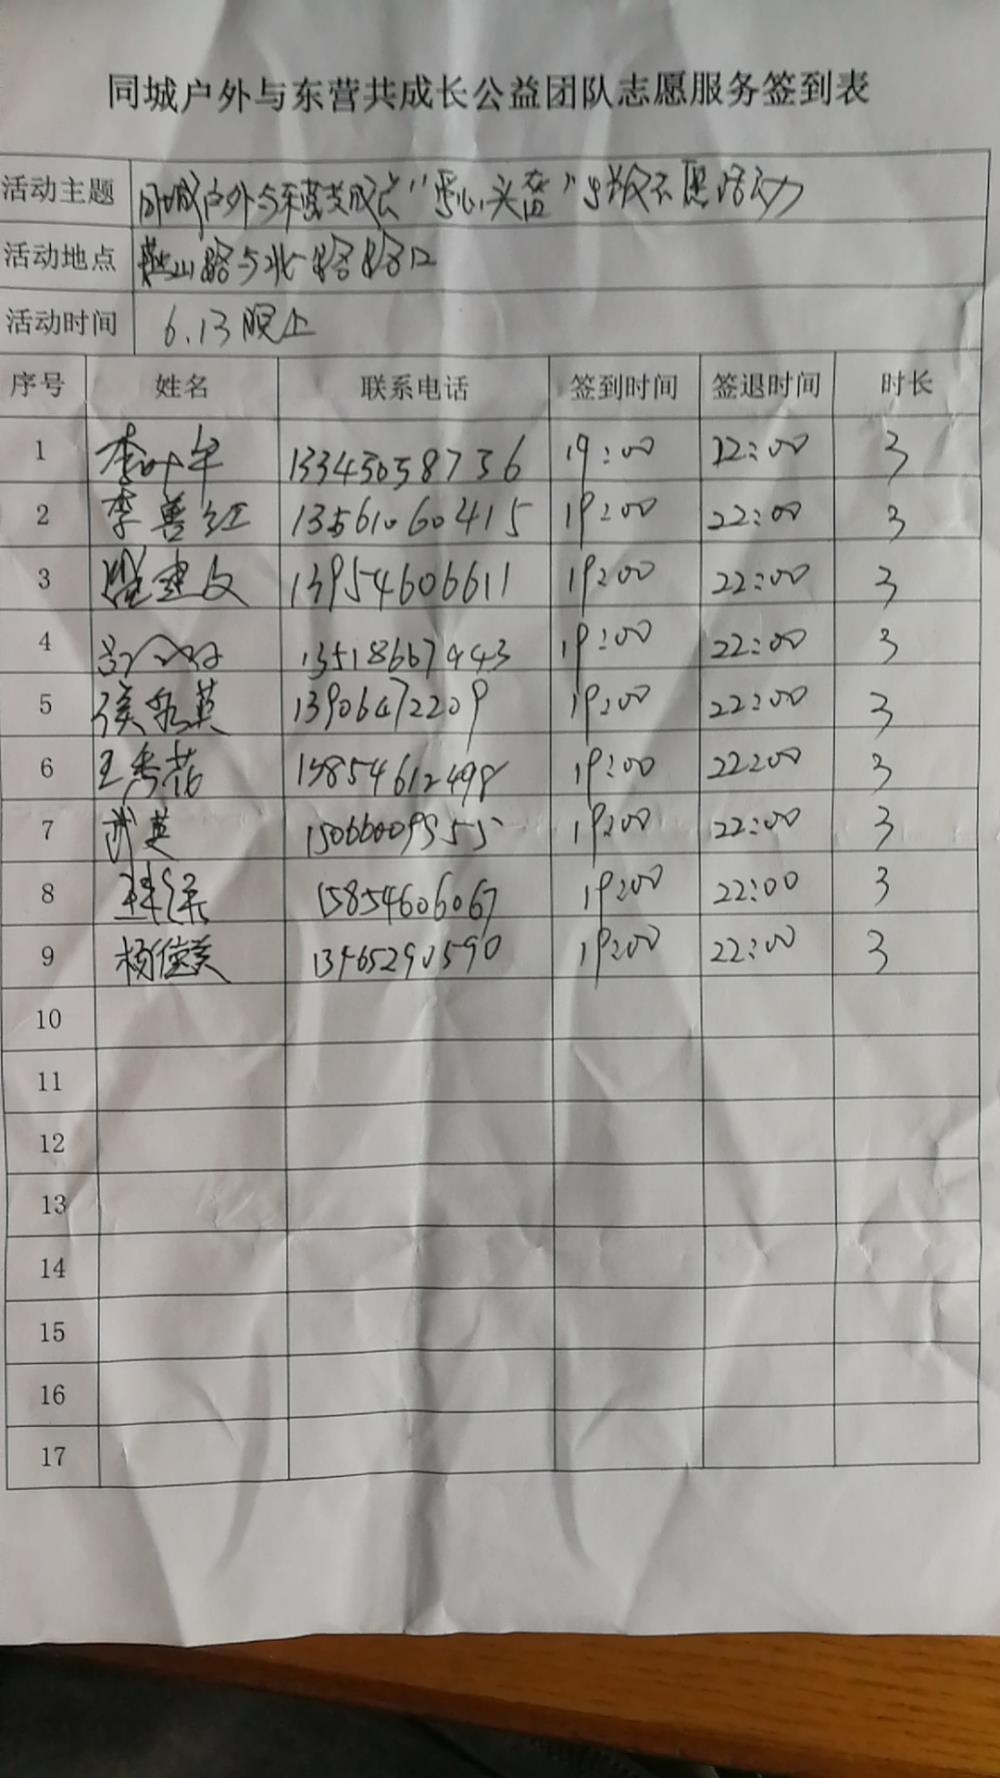 同城户外与东营共成长公益团队志愿服务签到表
活动主题 同城户外与东营共成长"爱心头盔" 志愿活动
活动地点 山路与北一路路口
活动时间 6.13晚上
序号 姓名 联系电话 签到时间 签退时间 时长
1 李 13345058736 19:00 22:00 3
2 李善红 13561060415 19:00 22:00 3
3 建文 13954606611 19:00 22:00 3
4 13518667443 19:00 22:00 3
5 侯 英 13906472209 19:00 22:00 3
6 王秀花 15854612498 19:00 22:00 3
7 武英 15066009555 19:00 22:00 3
8 15854606067 19:00 22:00 3
9 杨俊美 13465290590 19:00 22:00 3
10
11
12
13
14
15
16
17